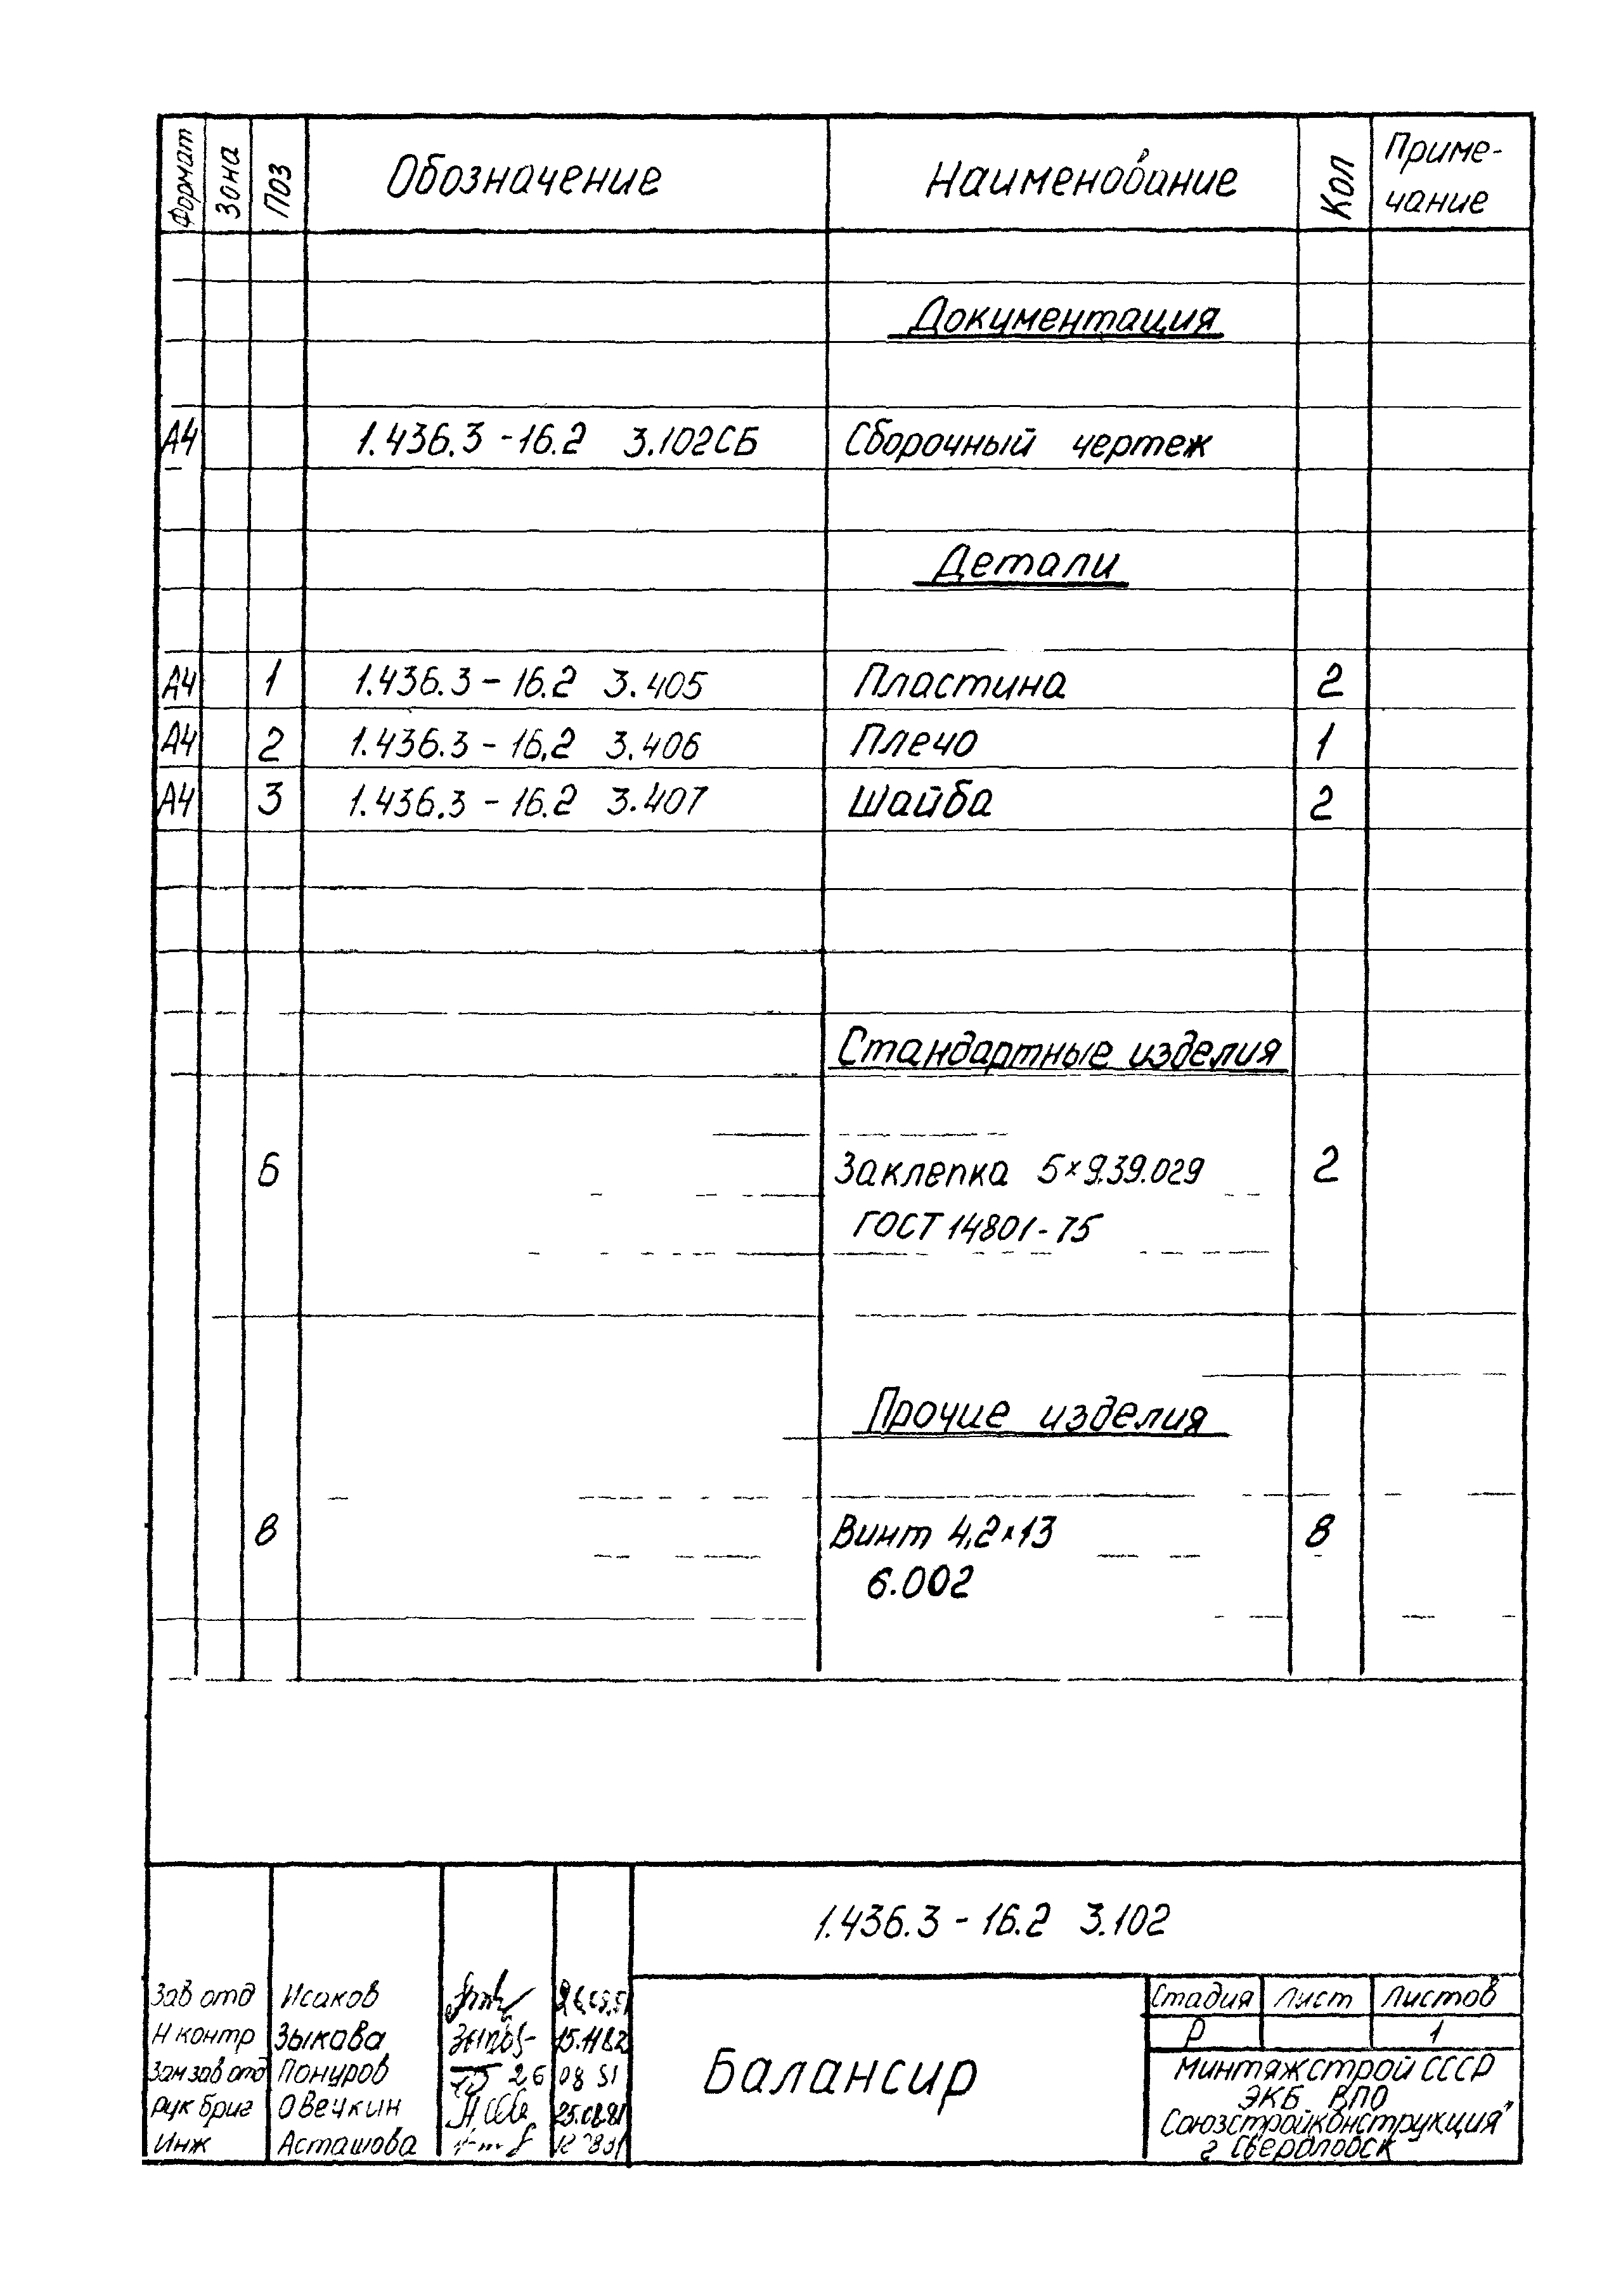 Формат Зона Поз Обозначение Наименование Кол Приме-
чание
Документация
А4 1.436.3-16.2 3.102СБ Сборочный чертеж
Детали
А4 1 1.436.3-16.2 3.405 Пластина 2
А4 2 1.436.3-16.2 3.406 Плечо 1
А4 3 1.436.3-16.2 3.407 Шайба 2
Стандартные изделия
6 Заклепка 5×9.39.029 2
ГОСТ 14801-75
Прочие изделия
8 Винт 4,2×13 8
6.002
1.436.3-16.2 3.102
Зав отд Исаков
Н контр Зыкова 15.11.82
Зам зав отд Понуров 26 08 81
Рук бриг Овечкин 25.08.81
Инж Асташова
Балансир
Стадия Лист Листов
Р 1
Минтяжстрой СССР
ЭКБ ВПО
Союзстройконструкция"
г Свердловск